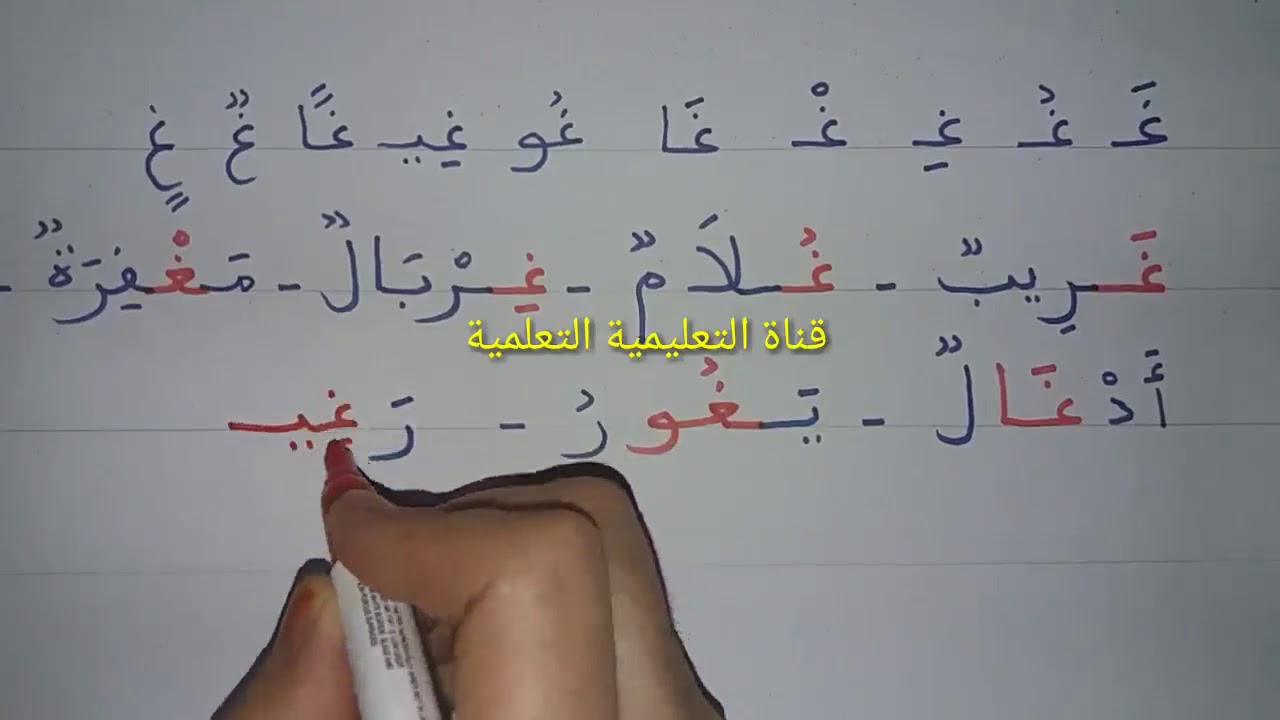 غَ غُ غِ غْ غَا غُو غِيـ غًا غٌ غٍ
غَرِيبٌ - غُلَامٌ - غِرْبَالٌ - مَغْفِرَةٌ -
قناة التعليمية التعلمية
أَدْغَالٌ - يَغُورُ - رَغِيـ